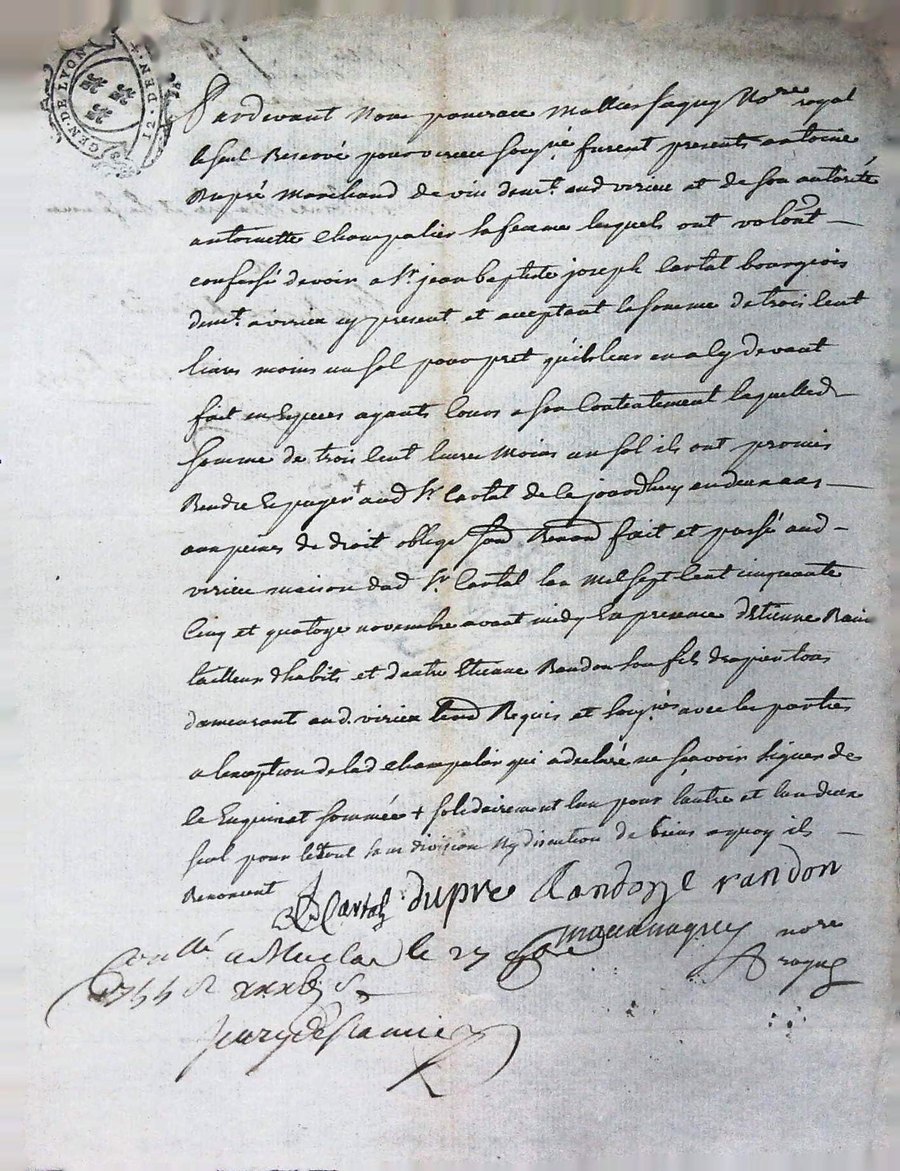 GEN · DE LYON DEN
Pardevant Nous pancrace Mathieu Jaquy Nore royal
le seul Reservé pour virieu soussigné furent presents antoine
Dupré Marchand de vin demt. aud virieu et de son autorité
antoinette Champalier sa femme lesquels ont volont
confessé devoir a Sr. jean baptiste joseph Cartal bourgeois
demt. a virieu cy present et acceptant la somme de trois Cent
livres moins un sol pour pret quil leur en a Cy devant
fait en Especes ayants Cours a son Contentement laquelled
somme de trois Cent livres Moins un sol ils ont promis
Rendre Et payer + aud Sr. Cartal de ce jourdhuy en deux ans
aux peines de droit oblige Soud Renond fait et passé aud
virieu maison dud Sr. Cartal lan Mil sept Cent cinquante
Cinq et quatoze novembre avant midy En presence dEtienne
tailleur dhabits et dautre Etienne Randon son fils drapier tous
demeurant aud. virieu Requis et soussignés avec les parties
a lexception de lad Champalier qui a declaré ne sçavoir signer de
ce Enquis et sommée + solidairement lun pour lautre et lun deux
seul pour le tout sans division Ny discution de biens a quoy ils
Renoncent
Cartal dupre Randon E randon
nore
Conllé a le 27
royal
1755 R